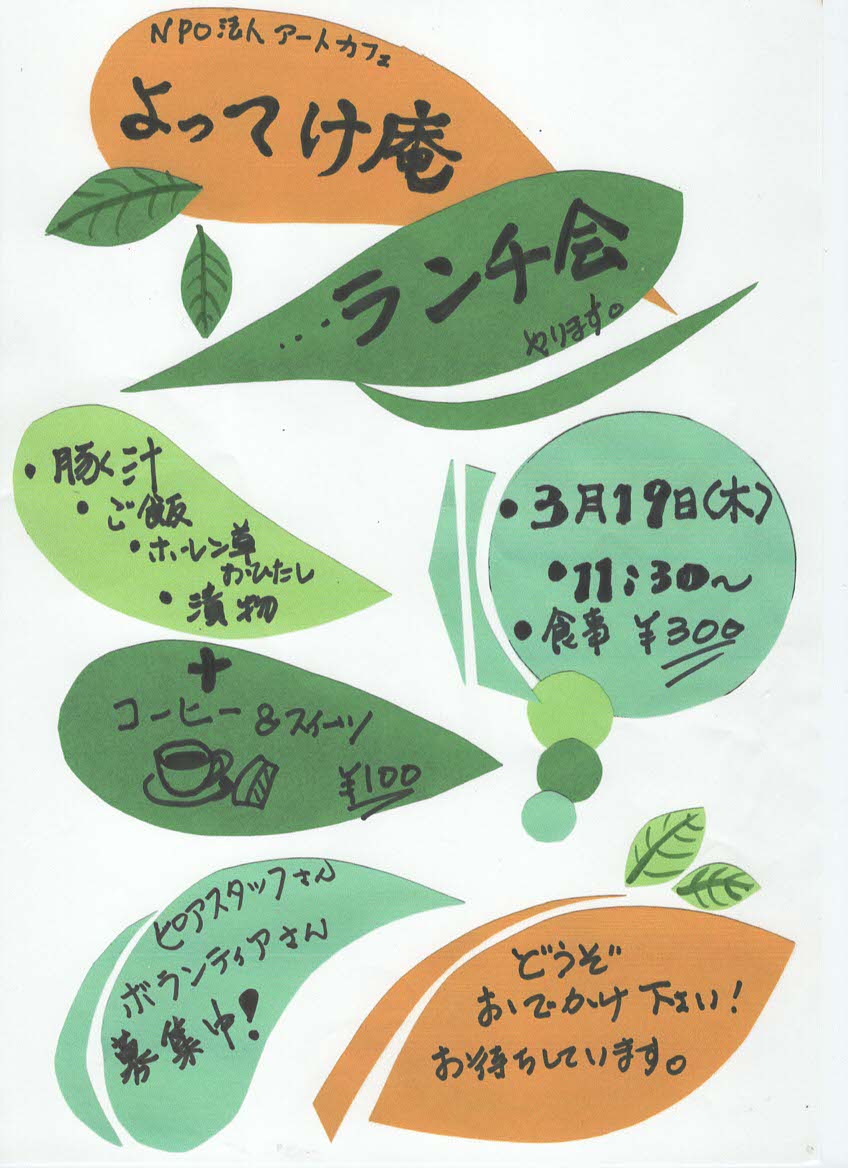 NPO法人 アートカフェ
よってけ庵
...ランチ会
やります。
・豚汁
・ご飯
・ホーレン草
おひたし
・漬物
・3月19日(木)
・11:30〜
・食事 ¥300
+
コーヒー&スイーツ
¥100
ピアスタッフさん
ボランティアさん
募集中!
どうぞ
おいでかけ下さい!
お待ちしています。